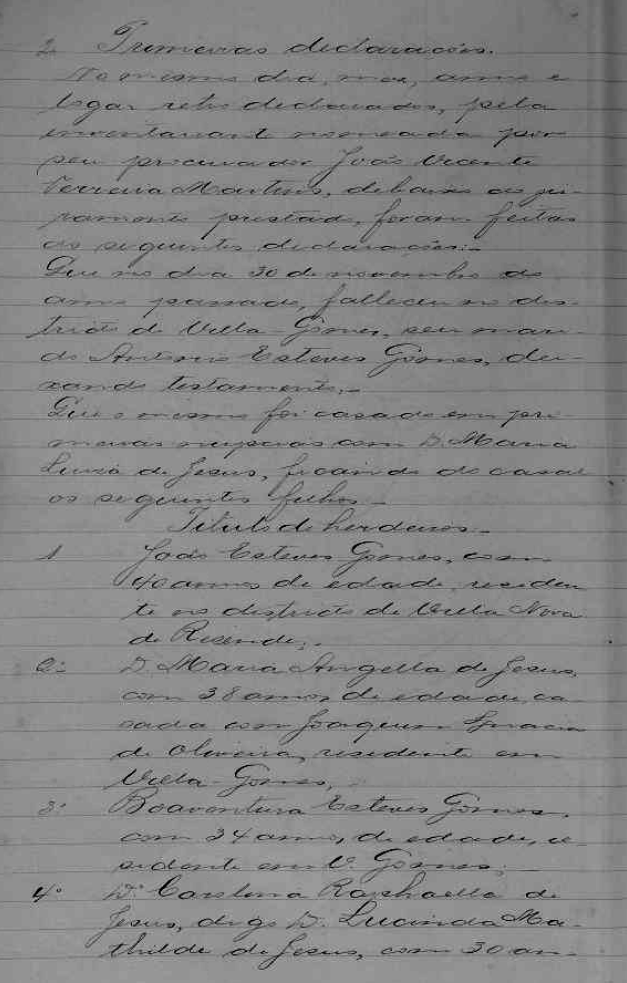 2. Primeiras declarações.
No mesmo dia, mez, anno e
logar retro declarados, pela
inventariante nomeada por
seu procurador João Vicente
Ferreira Martins, debaixo do ju-
ramento prestado, foram feitas
as seguintes declarações:-
Que no dia 30 de novembro do
anno passado, falleceu no dis-
tricto de Villa-Gomes, seu mari-
do Antonio Esteves Gomes, dei-
xando testamento,-
Que o mesmo foi casado em pri-
meiras nupcias com D. Maria
Luzia de Jesus, ficando do casal
os seguintes filhos-
Titulo de herdeiros-
1 João Esteves Gomes, com
40 annos de edade, residen-
te no districto de Villa Nova
de Resende;-
2º D. Maria Angella de Jesus,
com 38 annos de edade, ca-
sada com Joaquim Ignacio
de Oliveira, residente em
Villa-Gomes,
3º Boaventura Esteves Gomes,
com 34 annos, de edade, re-
sidente em V. Gomes;-
4º Dª Carolina Raphaella de
Jesus, digo D. Lucinda Ma-
thilde de Jesus, com 30 an-